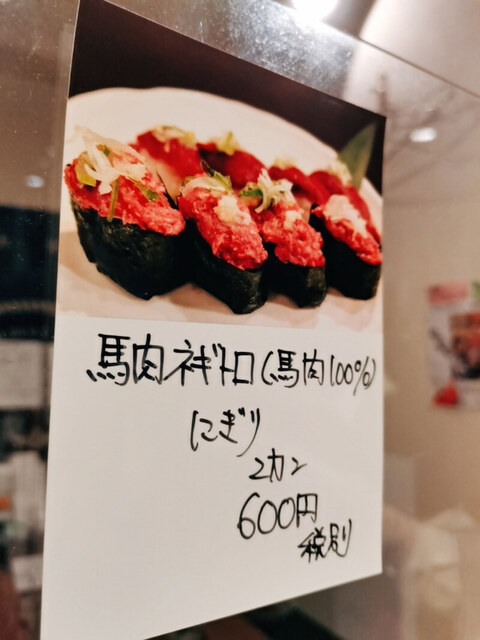 馬肉ネギトロ(馬肉100%)
にぎり
2カン
600円
税別